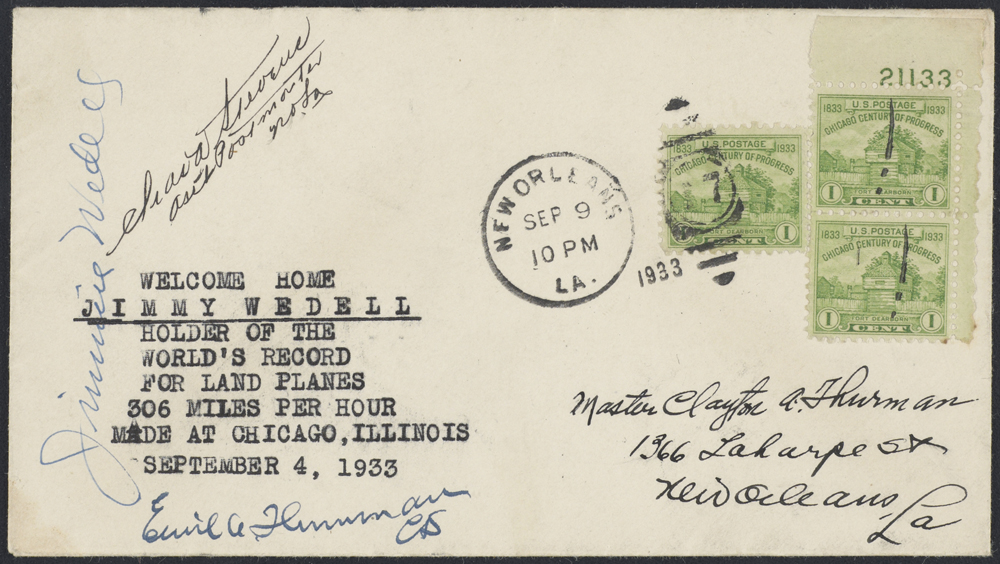 Jimmie Wedell
Stevens
Asst Postmaster
NO La
WELCOME HOME
JIMMY WEDELL
HOLDER OF THE
WORLD'S RECORD
FOR LAND PLANES
306 MILES PER HOUR
MADE AT CHICAGO, ILLINOIS
SEPTEMBER 4, 1933
Emil A Thurman
NEW ORLEANS
SEP 9
10 PM
LA.
1933
21133
1833 U.S. POSTAGE 1933
CHICAGO CENTURY OF PROGRESS
FORT DEARBORN
1 CENT 1
1833 U.S. POSTAGE 1933
CHICAGO CENTURY OF PROGRESS
FORT DEARBORN
1 CENT 1
1833 U.S. POSTAGE 1933
CHICAGO CENTURY OF PROGRESS
FORT DEARBORN
1 CENT 1
Master Clayton A. Thurman
1366 Laharpe St
New Orleans,
La